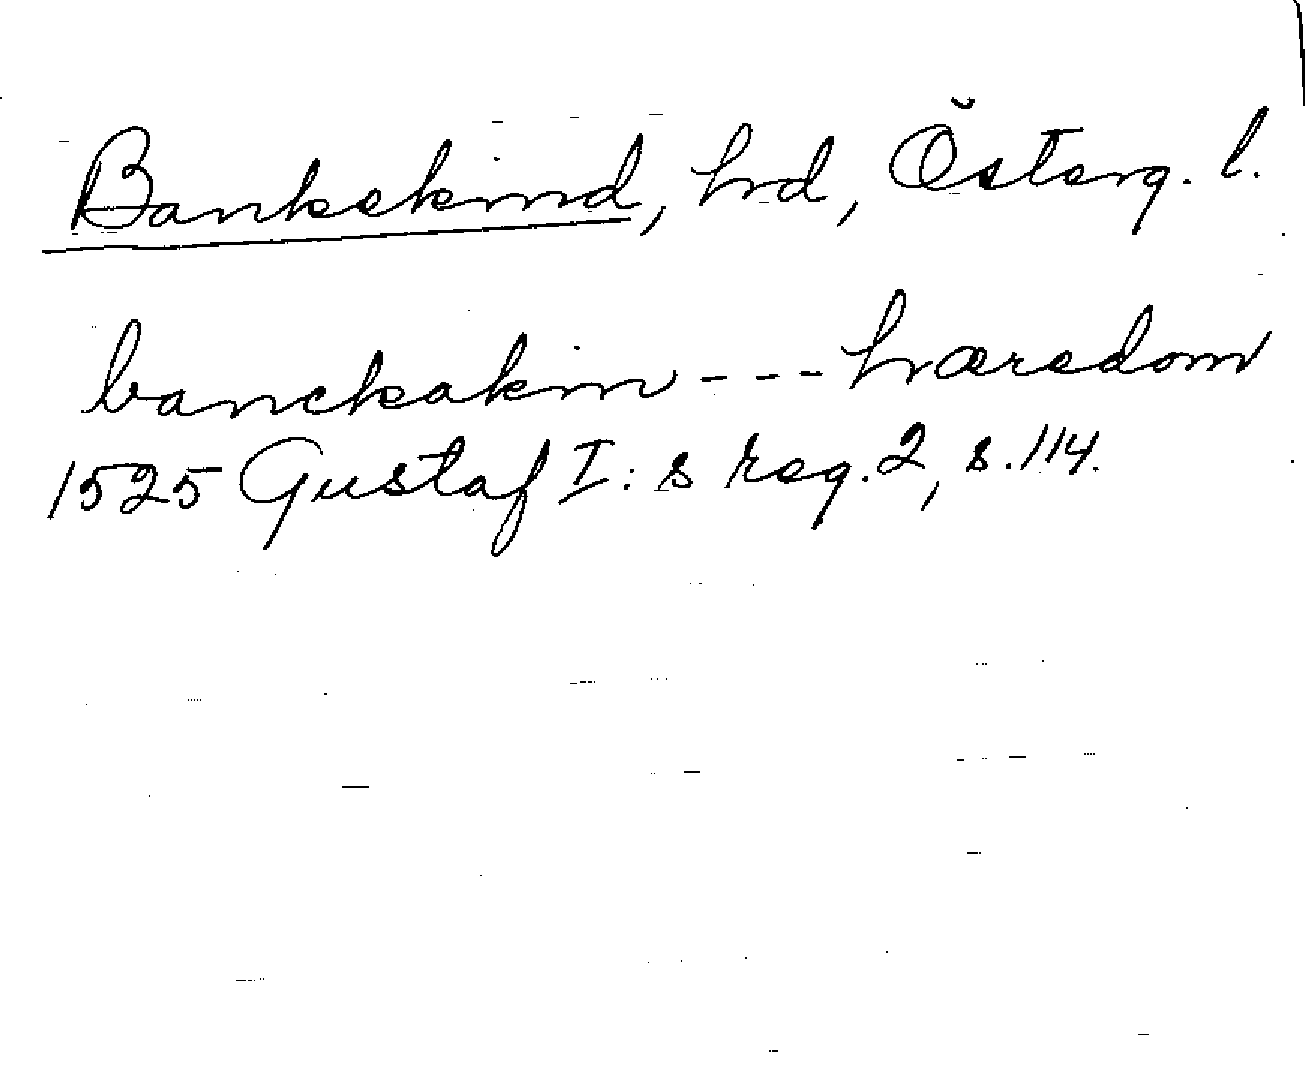 Bankekind, hd, Österg. l.
banckakin --- hæredom
1525 Gustaf I:s reg. 2, s. 114.